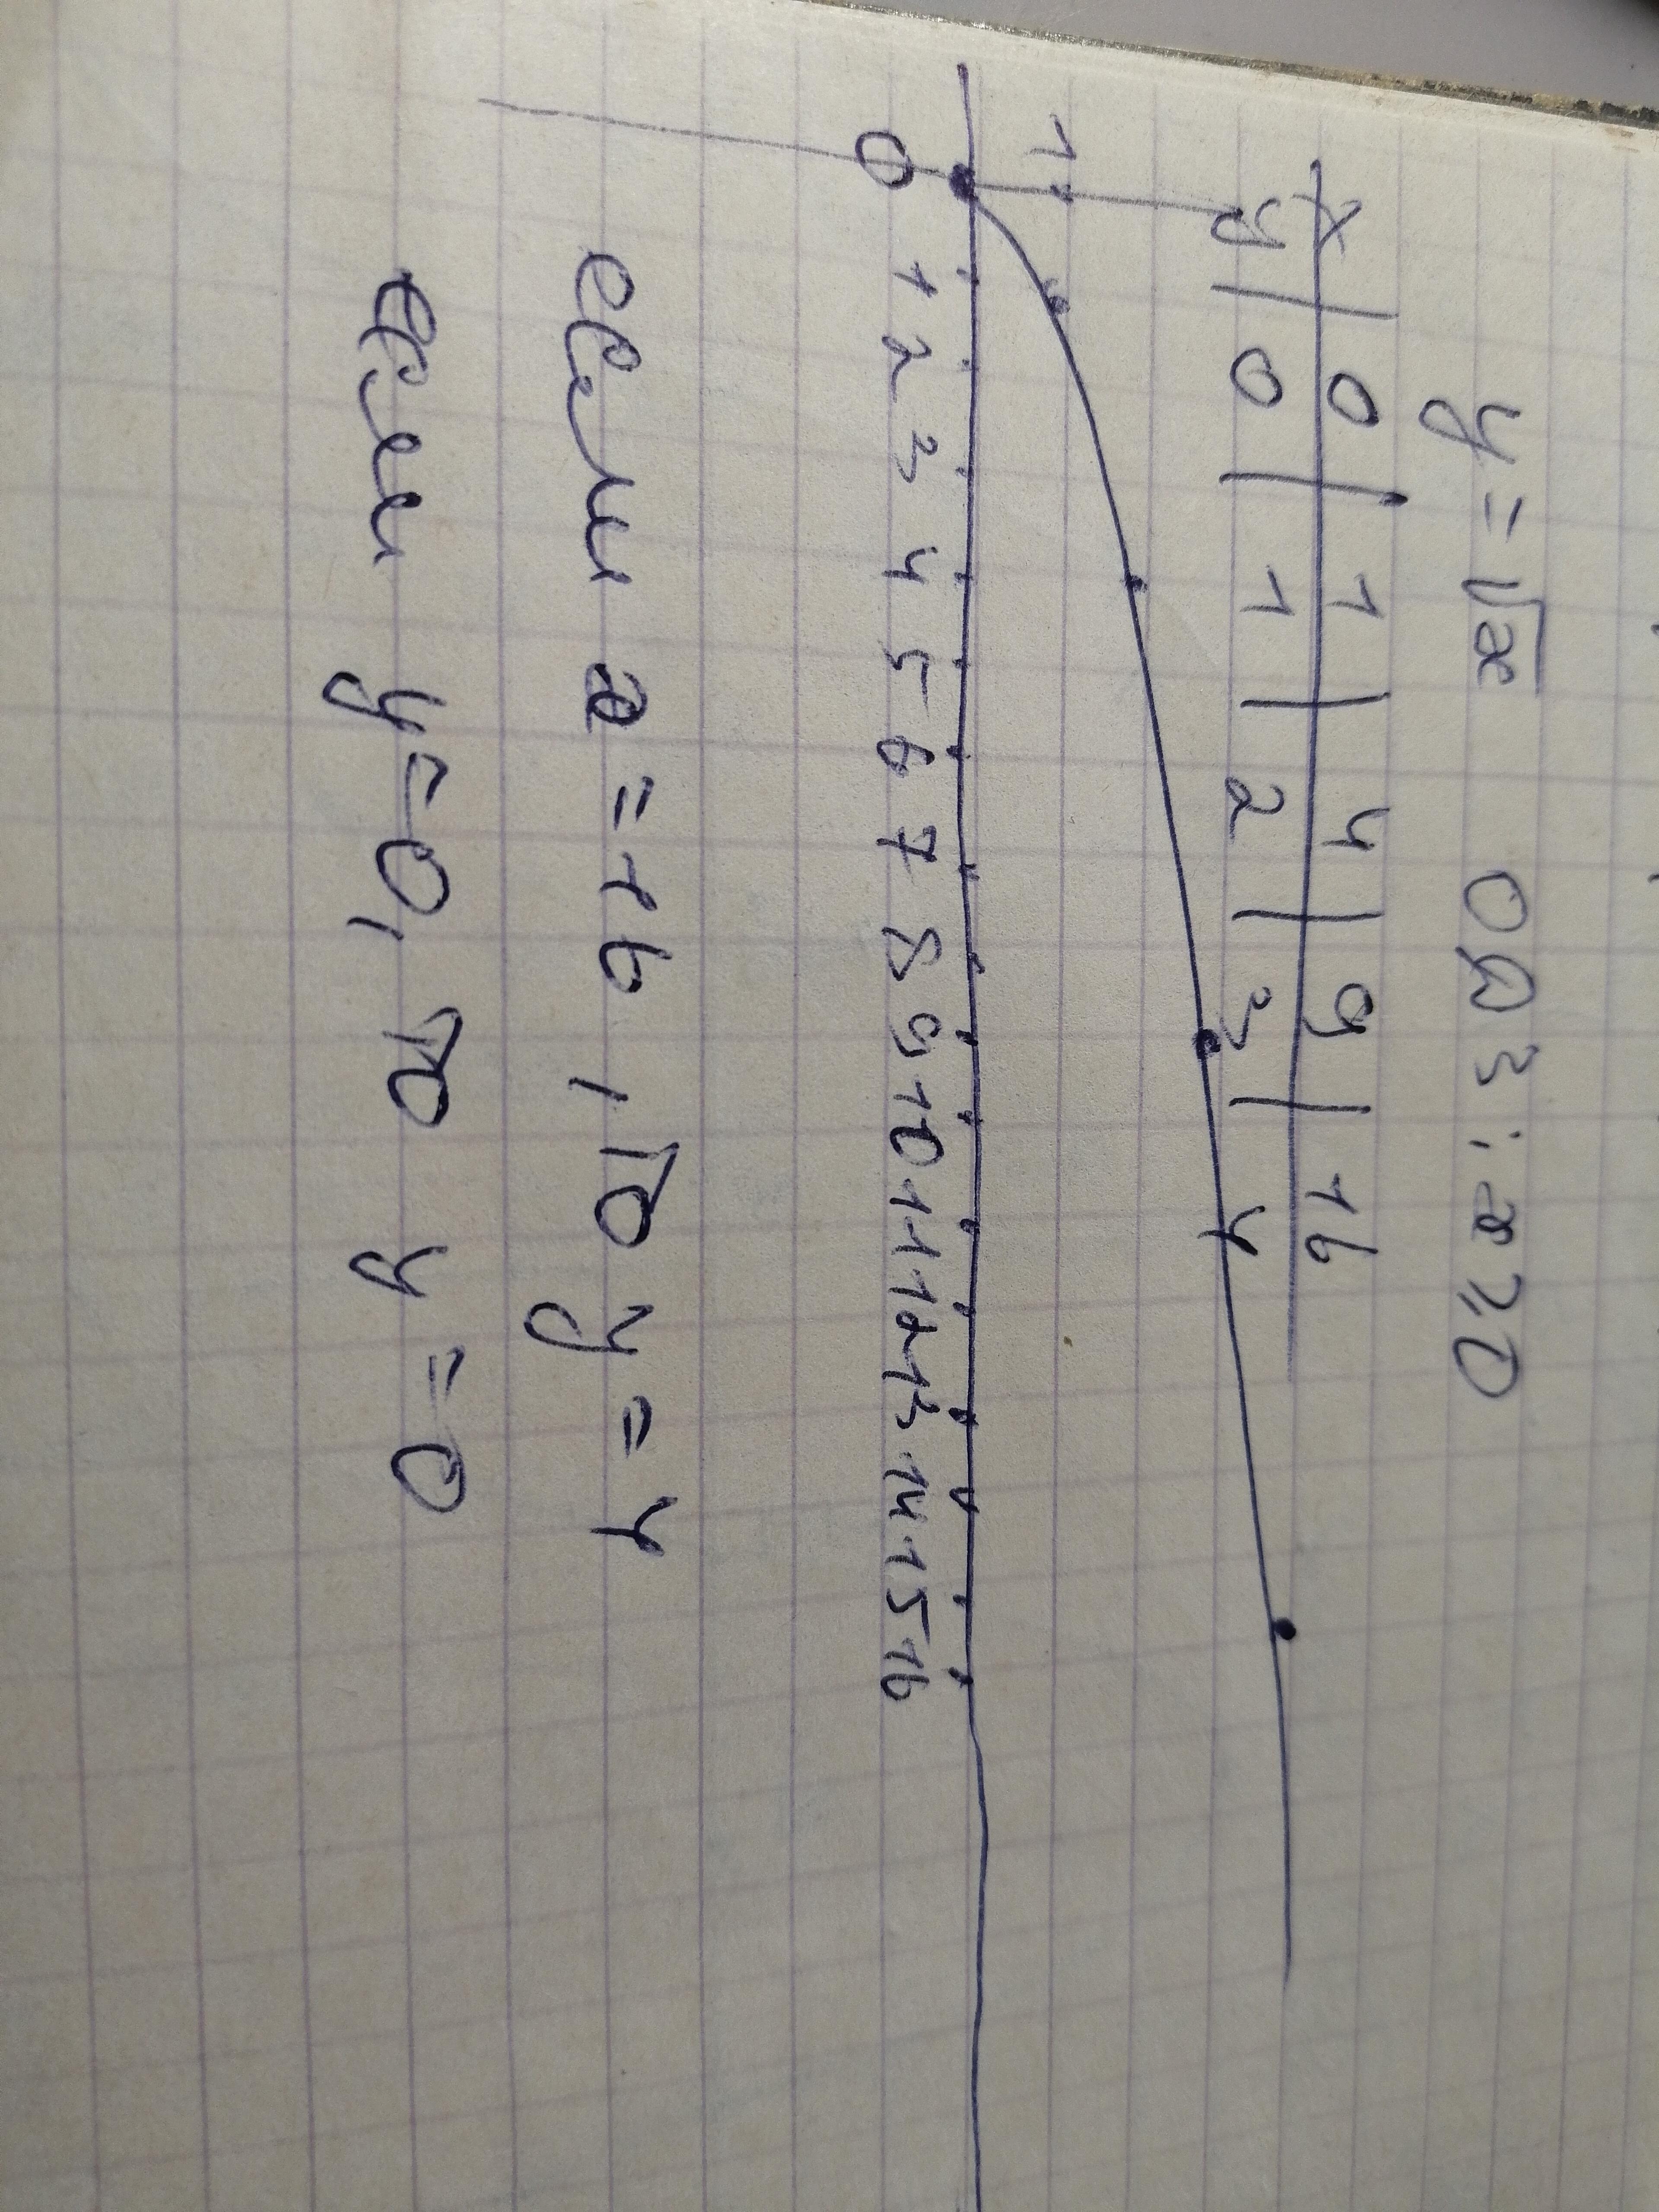 y = √x ОДЗ: x ≥ 0
x | 0 | 1 | 4 | 9 | 16
y | 0 | 1 | 2 | 3 | 4
1
0 1 2 3 4 5 6 7 8 9 10 11 12 13 14 15 16
если x = 16, то y = 4
если y = 0, то y = 0